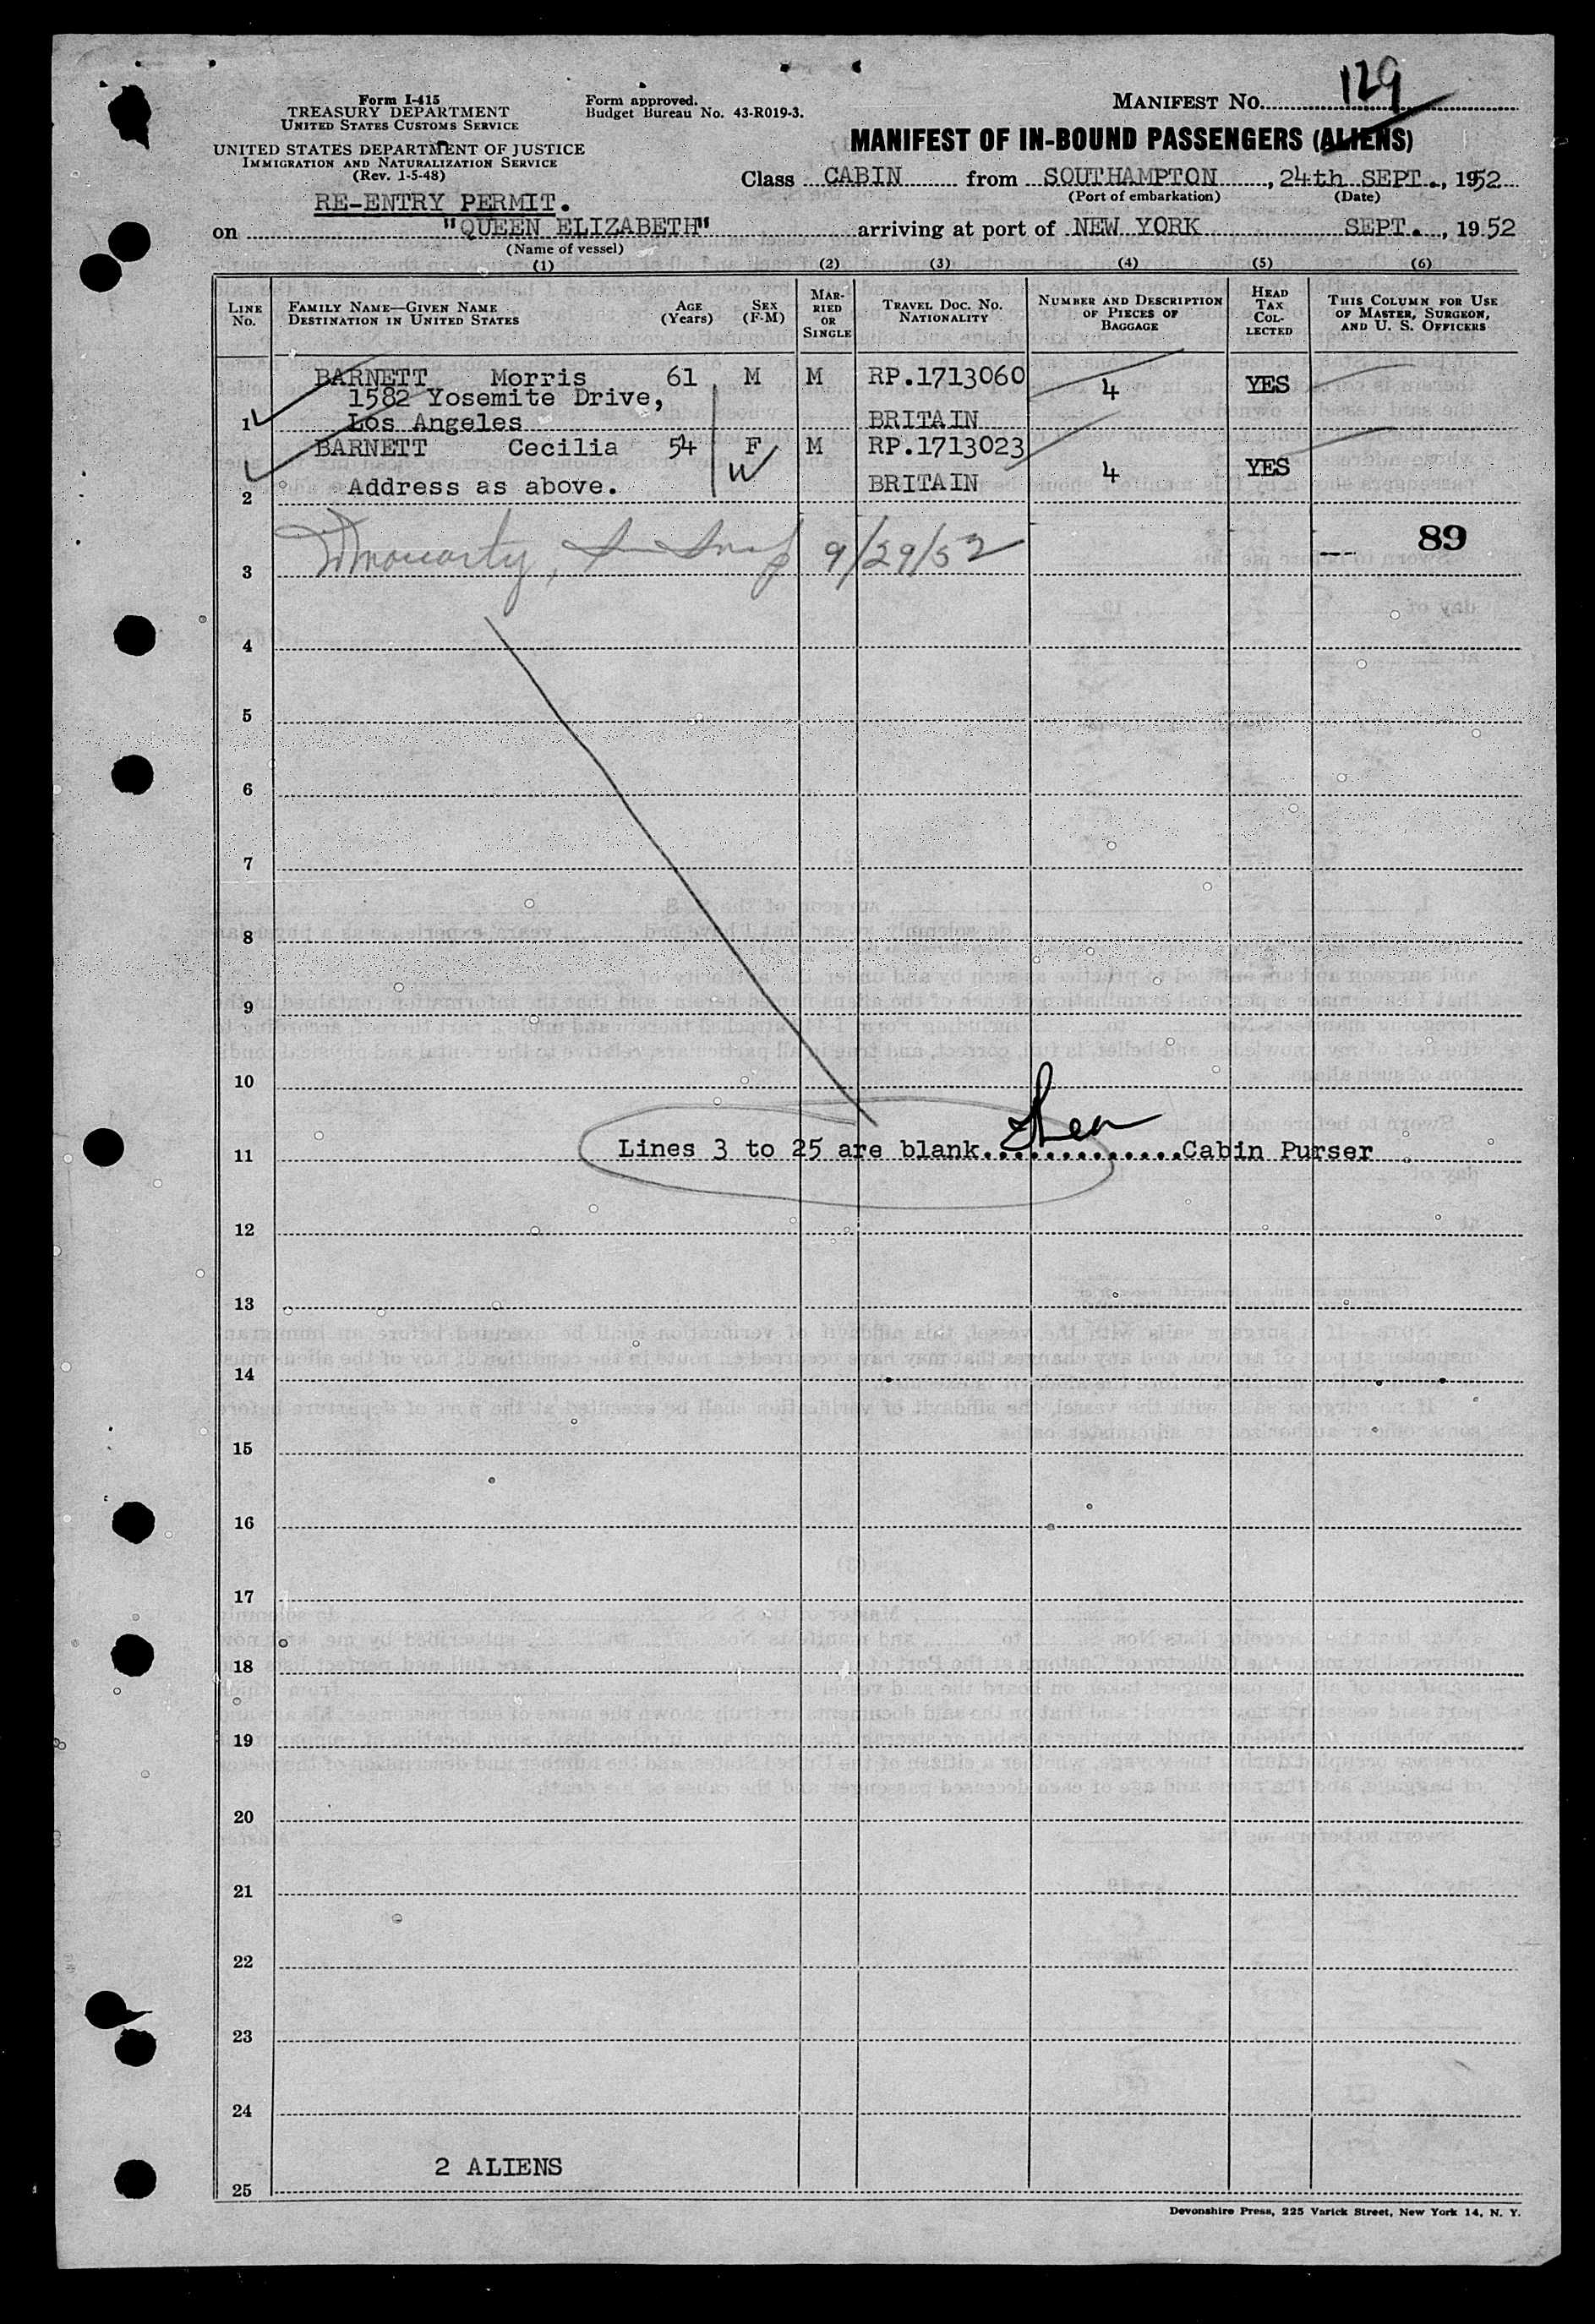 Form I-415
TREASURY DEPARTMENT
UNITED STATES CUSTOMS SERVICE
UNITED STATES DEPARTMENT OF JUSTICE
IMMIGRATION AND NATURALIZATION SERVICE
(Rev. 1-5-48)
Form approved.
Budget Bureau No. 43-R019-3.
MANIFEST NO. 129
MANIFEST OF IN-BOUND PASSENGERS (ALIENS)
Class CABIN from SOUTHAMPTON, 24th SEPT., 1952
(Port of embarkation) (Date)
RE-ENTRY PERMIT.
on "QUEEN ELIZABETH" arriving at port of NEW YORK SEPT., 1952
(Name of vessel)
(1) (2) (3) (4) (5) (6)
LINE NO. FAMILY NAME—GIVEN NAME DESTINATION IN UNITED STATES AGE (Years) SEX (F-M) MARRIED OR SINGLE TRAVEL DOC. NO. NATIONALITY NUMBER AND DESCRIPTION OF PIECES OF BAGGAGE HEAD TAX COLLECTED THIS COLUMN FOR USE OF MASTER, SURGEON, AND U. S. OFFICERS
BARNETT Morris 61 M M RP.1713060 4 YES
1582 Yosemite Drive,
1 Los Angeles BRITAIN
BARNETT Cecilia 54 F M RP.1713023 4 YES
W
2 Address as above. BRITAIN
89
3 9/29/52
4
5
6
7
8
9
10
11 Lines 3 to 25 are blank.............Cabin Purser
12
13
14
15
16
17
18
19
20
21
22
23
24
2 ALIENS
25
Devonshire Press, 225 Varick Street, New York 14, N. Y.